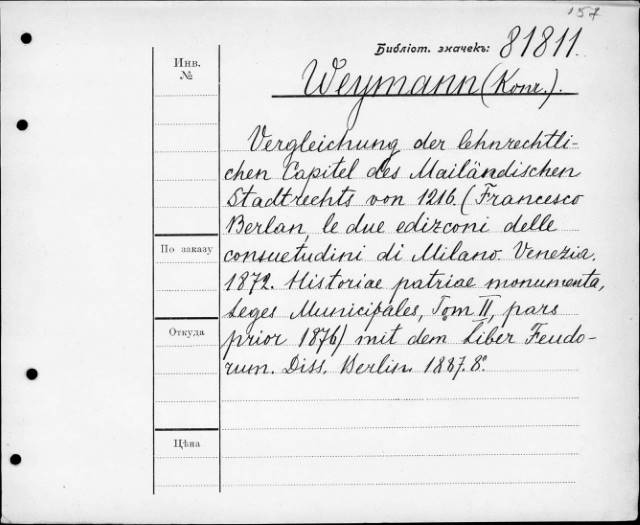 157
Библіот. значекъ: 81811.
Инв.
№
Weymann (Konr.).
Vergleichung der lehnrechtli-
chen Capitel des Mailändischen
Stadtrechts von 1216. (Francesco
Berlan, le due edizconi delle
По заказу
consuetudini di Milano. Venezia.
1872. Historiae patriae monumenta,
Leges Municipales, Tom II, pars
Откуда
prior 1876) mit dem Liber Feudo-
rum. Diss. Berlin. 1887. 8º.
Цѣна